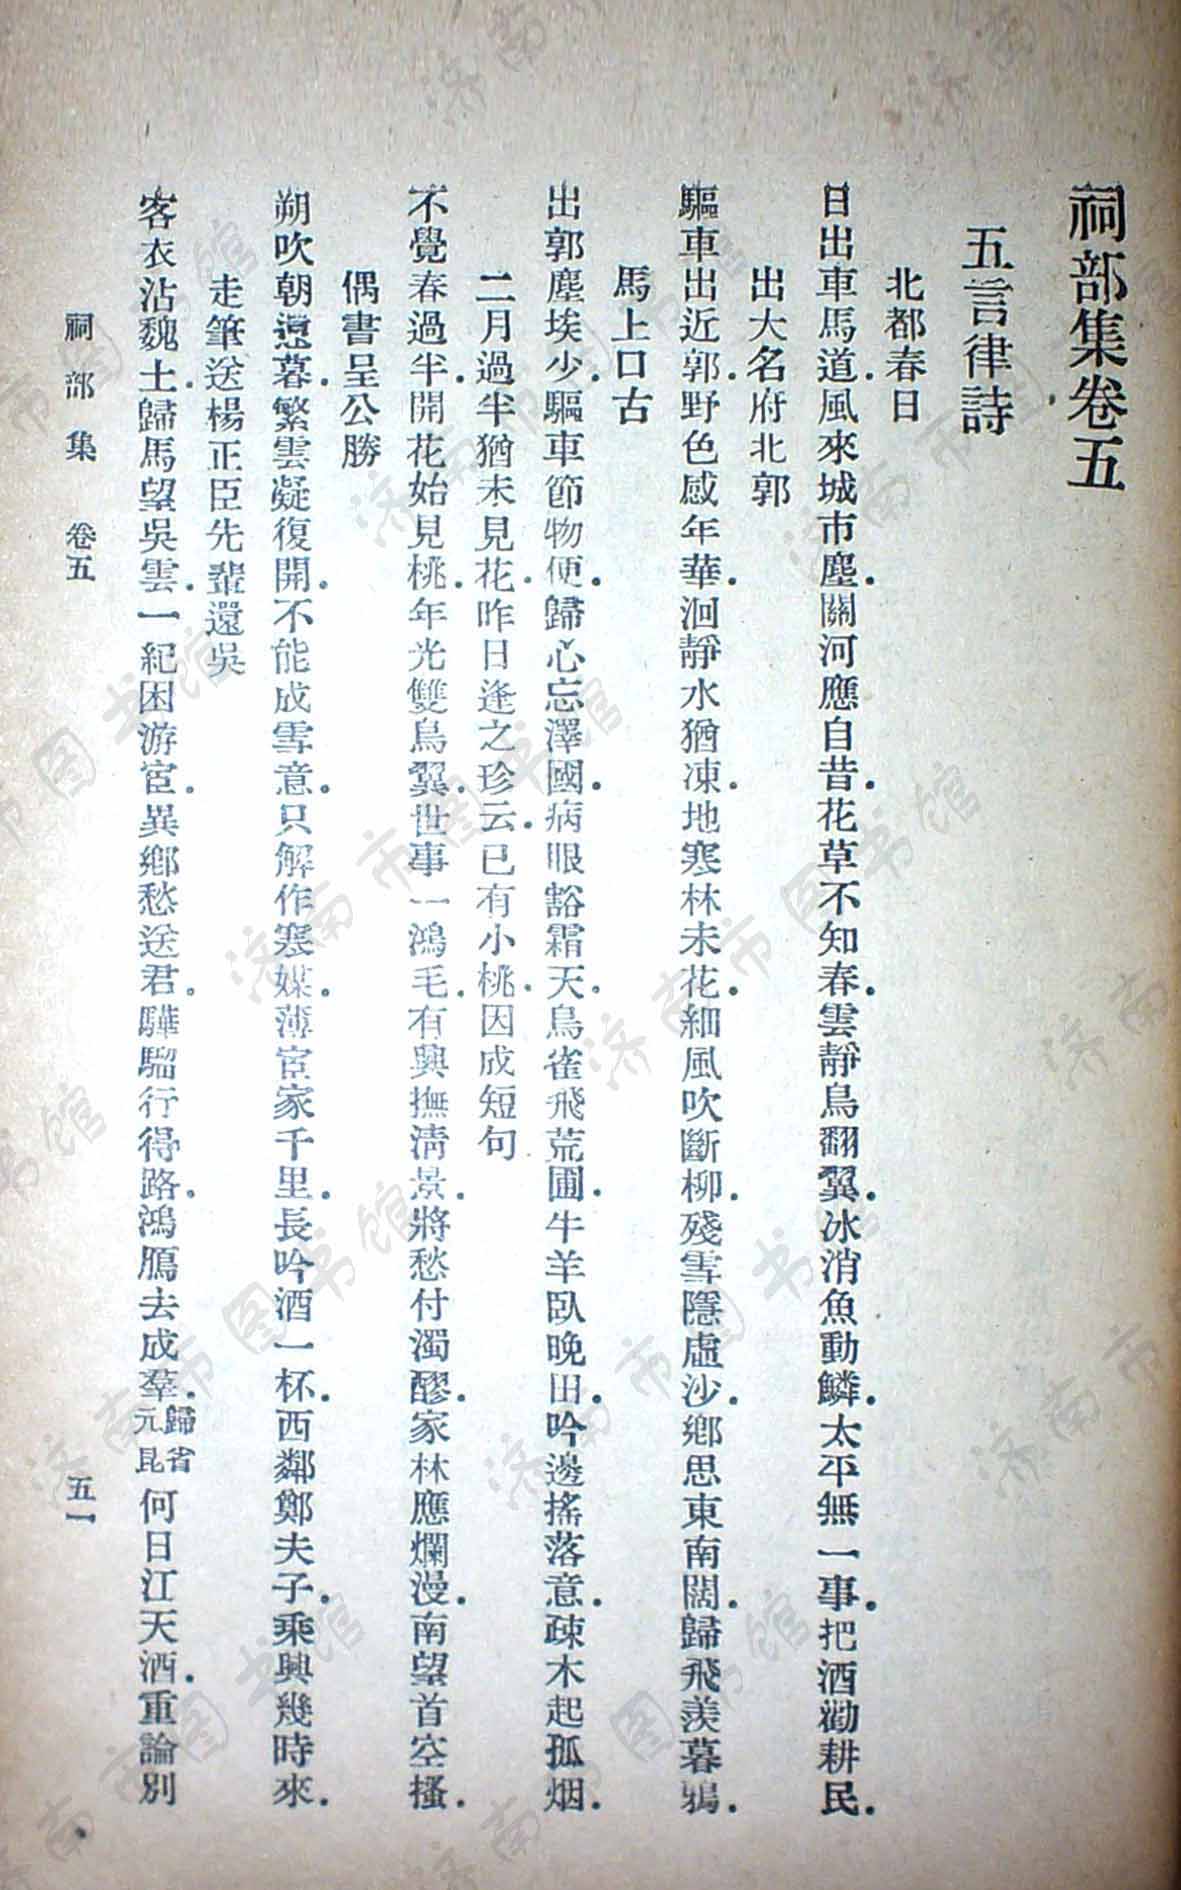 祠部集卷五
五言律詩
北都春日
日出車馬道.風來城市塵.關河應自昔.花草不知春.雲靜鳥翻翼.冰消魚動鱗.太平無一事.把酒勸耕民.
出大名府北郭
驅車出近郭.野色感年華.洄靜水猶凍.地寒林未花.細風吹斷柳.殘雪隱虛沙.鄉思東南闊.歸飛羨暮鴉.
馬上口古
出郭塵埃少.驅車節物便.歸心忘澤國.病眼豁霜天.鳥雀飛荒圃.牛羊臥晚田.吟邊搖落意.疎木起孤烟.
二月過半猶未見花.昨日逢之珍云.已有小桃.因成短句
不覺春過半.開花始見桃.年光雙鳥翼.世事一鴻毛.有興撫清景.將愁付濁醪.家林應爛漫.南望首空搔.
偶書呈公勝
朔吹朝還暮.繁雲凝復開.不能成雪意.只解作寒媒.薄宦家千里.長吟酒一杯.西鄰鄭夫子.乘興幾時來.
走筆送楊正臣先輩還吳
客衣沾魏土.歸馬望吳雲.一紀困游宦.異鄉愁送君.驊騮行得路.鴻鴈去成羣.歸省元昆何日江天酒.重論別
祠部集 卷五 五一
济南市图书馆